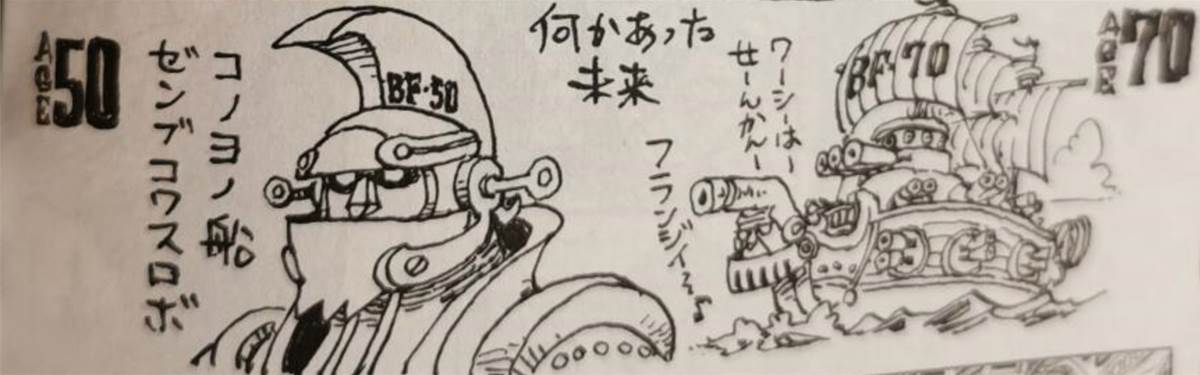 AGE 50
コノヨノ船
ゼンブコワスロボ
BF-50
何かあった
未来
ワーシーはー
せーんかんー
フランジィ〜〜♪
BF-70
AGE 70